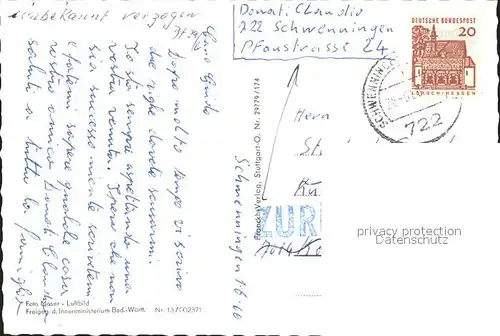 unbekannt verzogen
Donati Claudio
722 Schwenningen
Pfaustrasse 24.
DEUTSCHE BUNDESPOST
20
LORSCH/HESSEN
SCHWENNINGEN
722
Caro Guido
Dopo molto tempo vi scrivo
due righe dovete scusarmi.
Io sto sempre aspettando una
vostra venuta. Spero che non
sia successo niente scrivetemi
e fatemi sapere qualche cosa
vostro amico Donati Claudio
saluti a tutta la famiglia
Schwenningen 16.10
Franckh Verlag, Stuttgart-O. Nr. 29779/174
Herrn
ZUR
privacy protection
Datenschutz
Foto Moser - Luftbild
Freigeg. d. Innenministerium Bad.-Württ. Nr. 13/002371